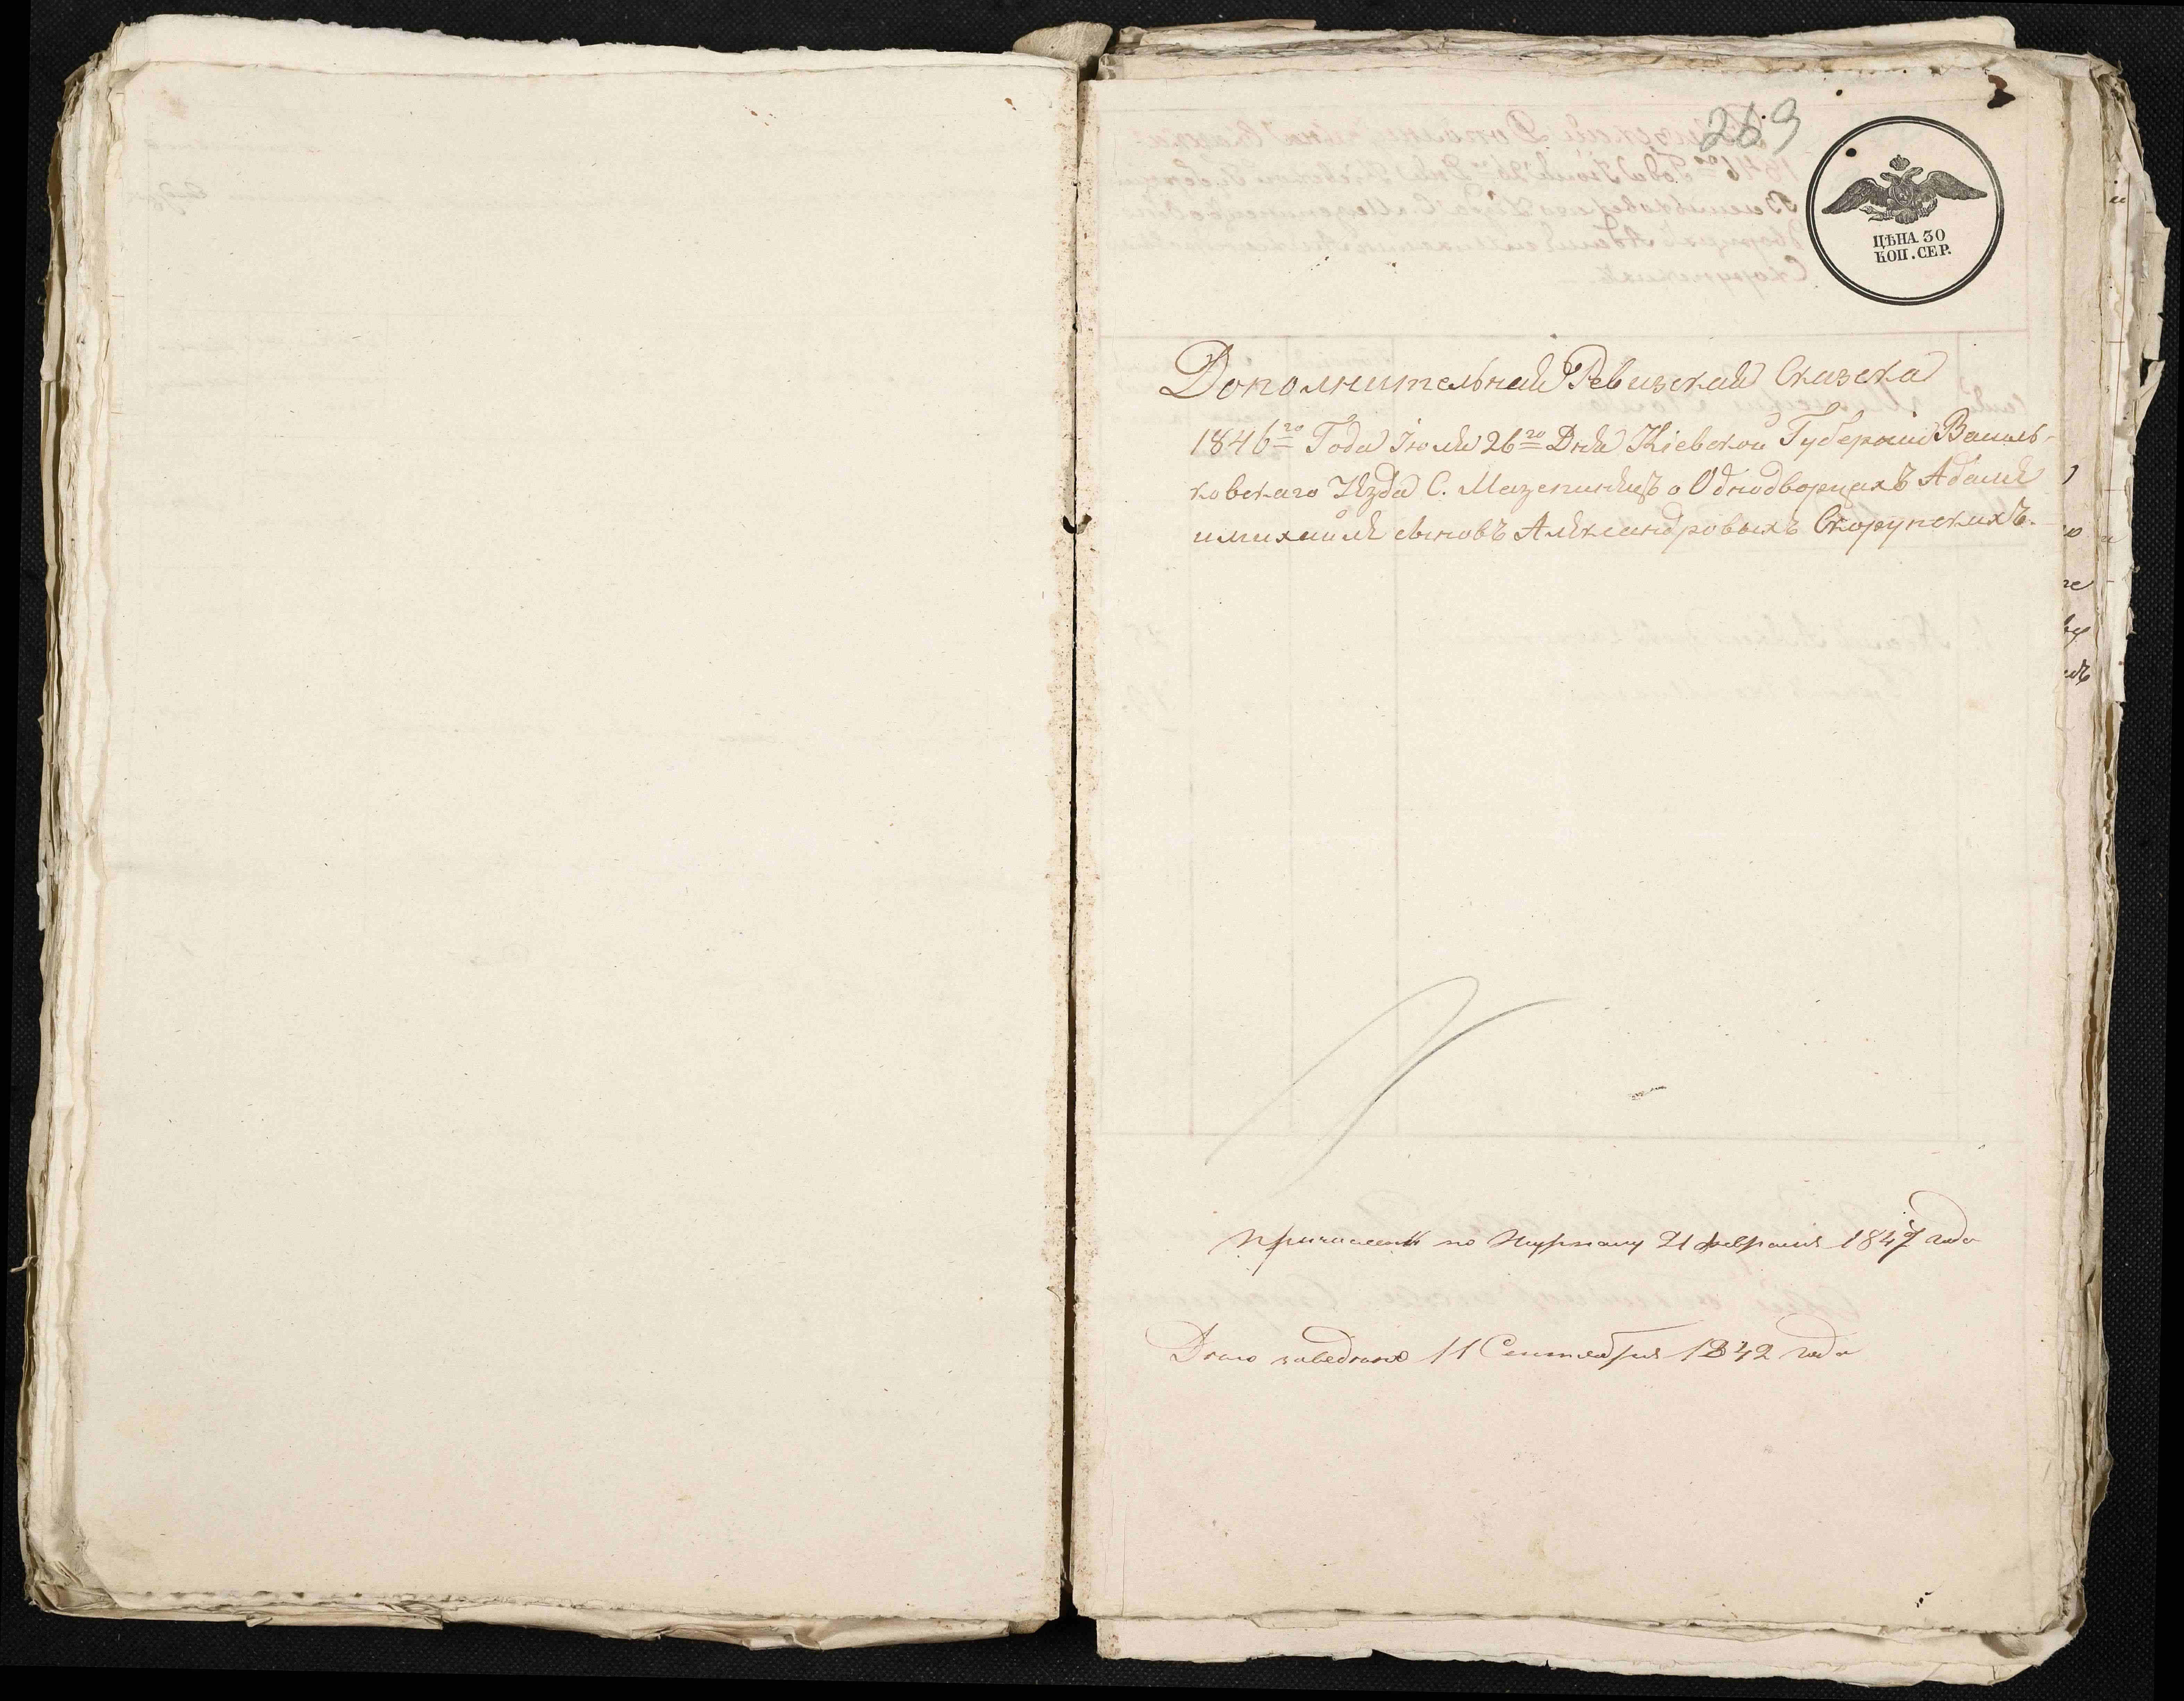 269
ЦѢНА 30
КОП. СЕР.
Дополнительная Ревизская Сказка
1846го Года Іюля 26го Дня Кіевской Губерніи Василь-
ковскаго Уѣзда С. Мазепинецъ о Однодворцахъ Адамѣ
имихайлѣ сыновъ Алѣксандровыхъ Скорупскихъ.
Причислены по Журналу 21 февраля 1847 года
Дѣло заведено 11 Сентября 1842 года